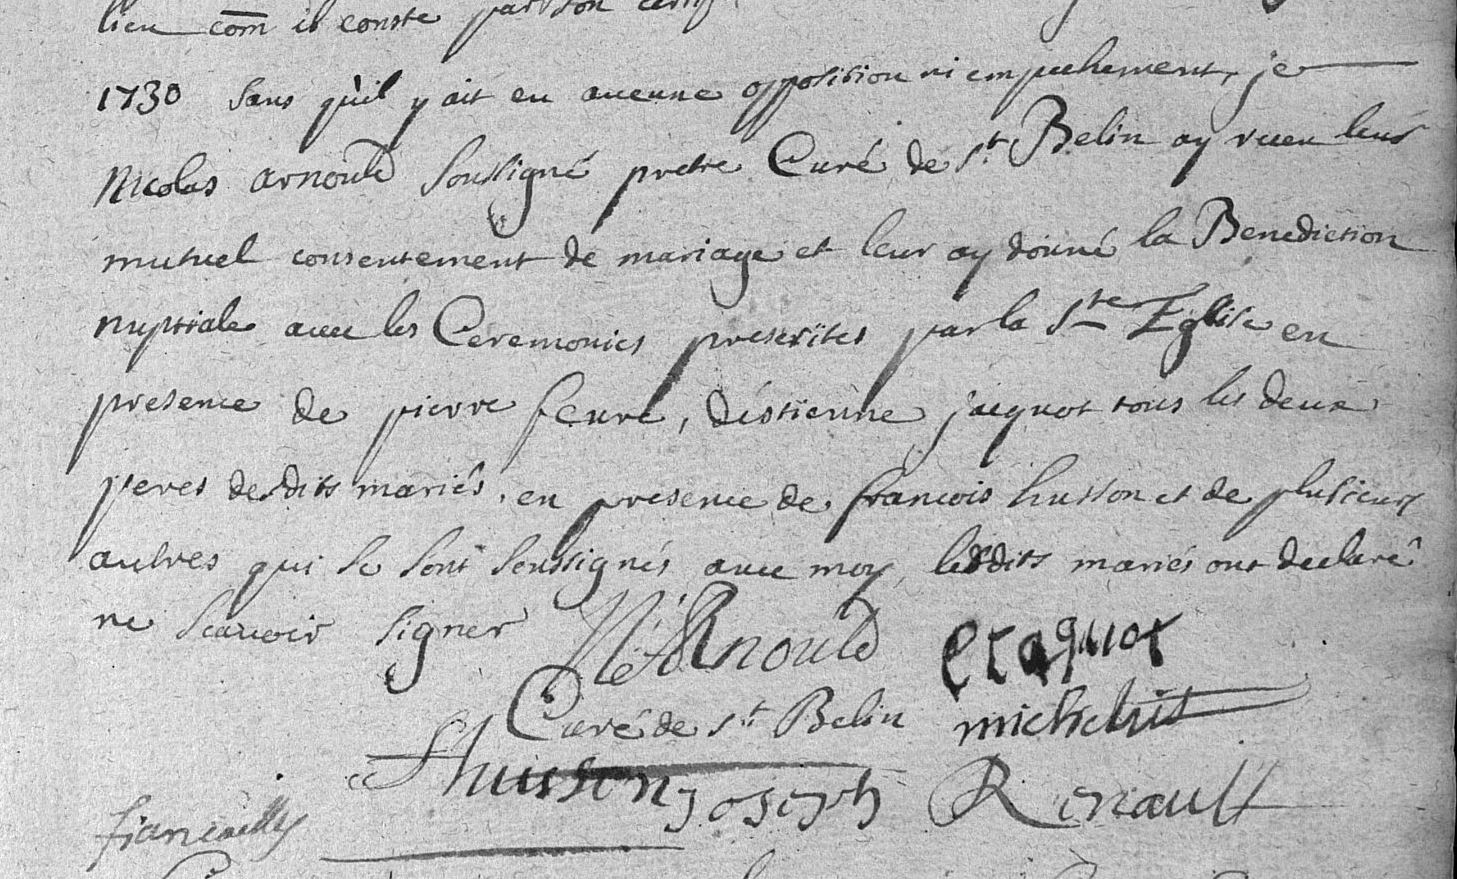 lieu com̄ il conste par son certif
1730 sans qu'il y ait eu aucune opposition ni empechement, je
Nicolas arnould soussigné pretre Curé de St. Belin ay receu leur
mutuel consentement de mariage et leur ay donné la Benediction
nuptiale avec les Ceremonies prescrites par la Ste Eglise en
presence de pierre feure, d'éstienne jacquot tous les deux
peres desdits mariés, en presence de francois husson et de plusieurs
autres qui se sont soussignés avec moy, lesdits mariés ont declaré
ne scavoir signer N Arnould
Curé de St. Belin michelut
fhusson Joseph Renault
fiancailles